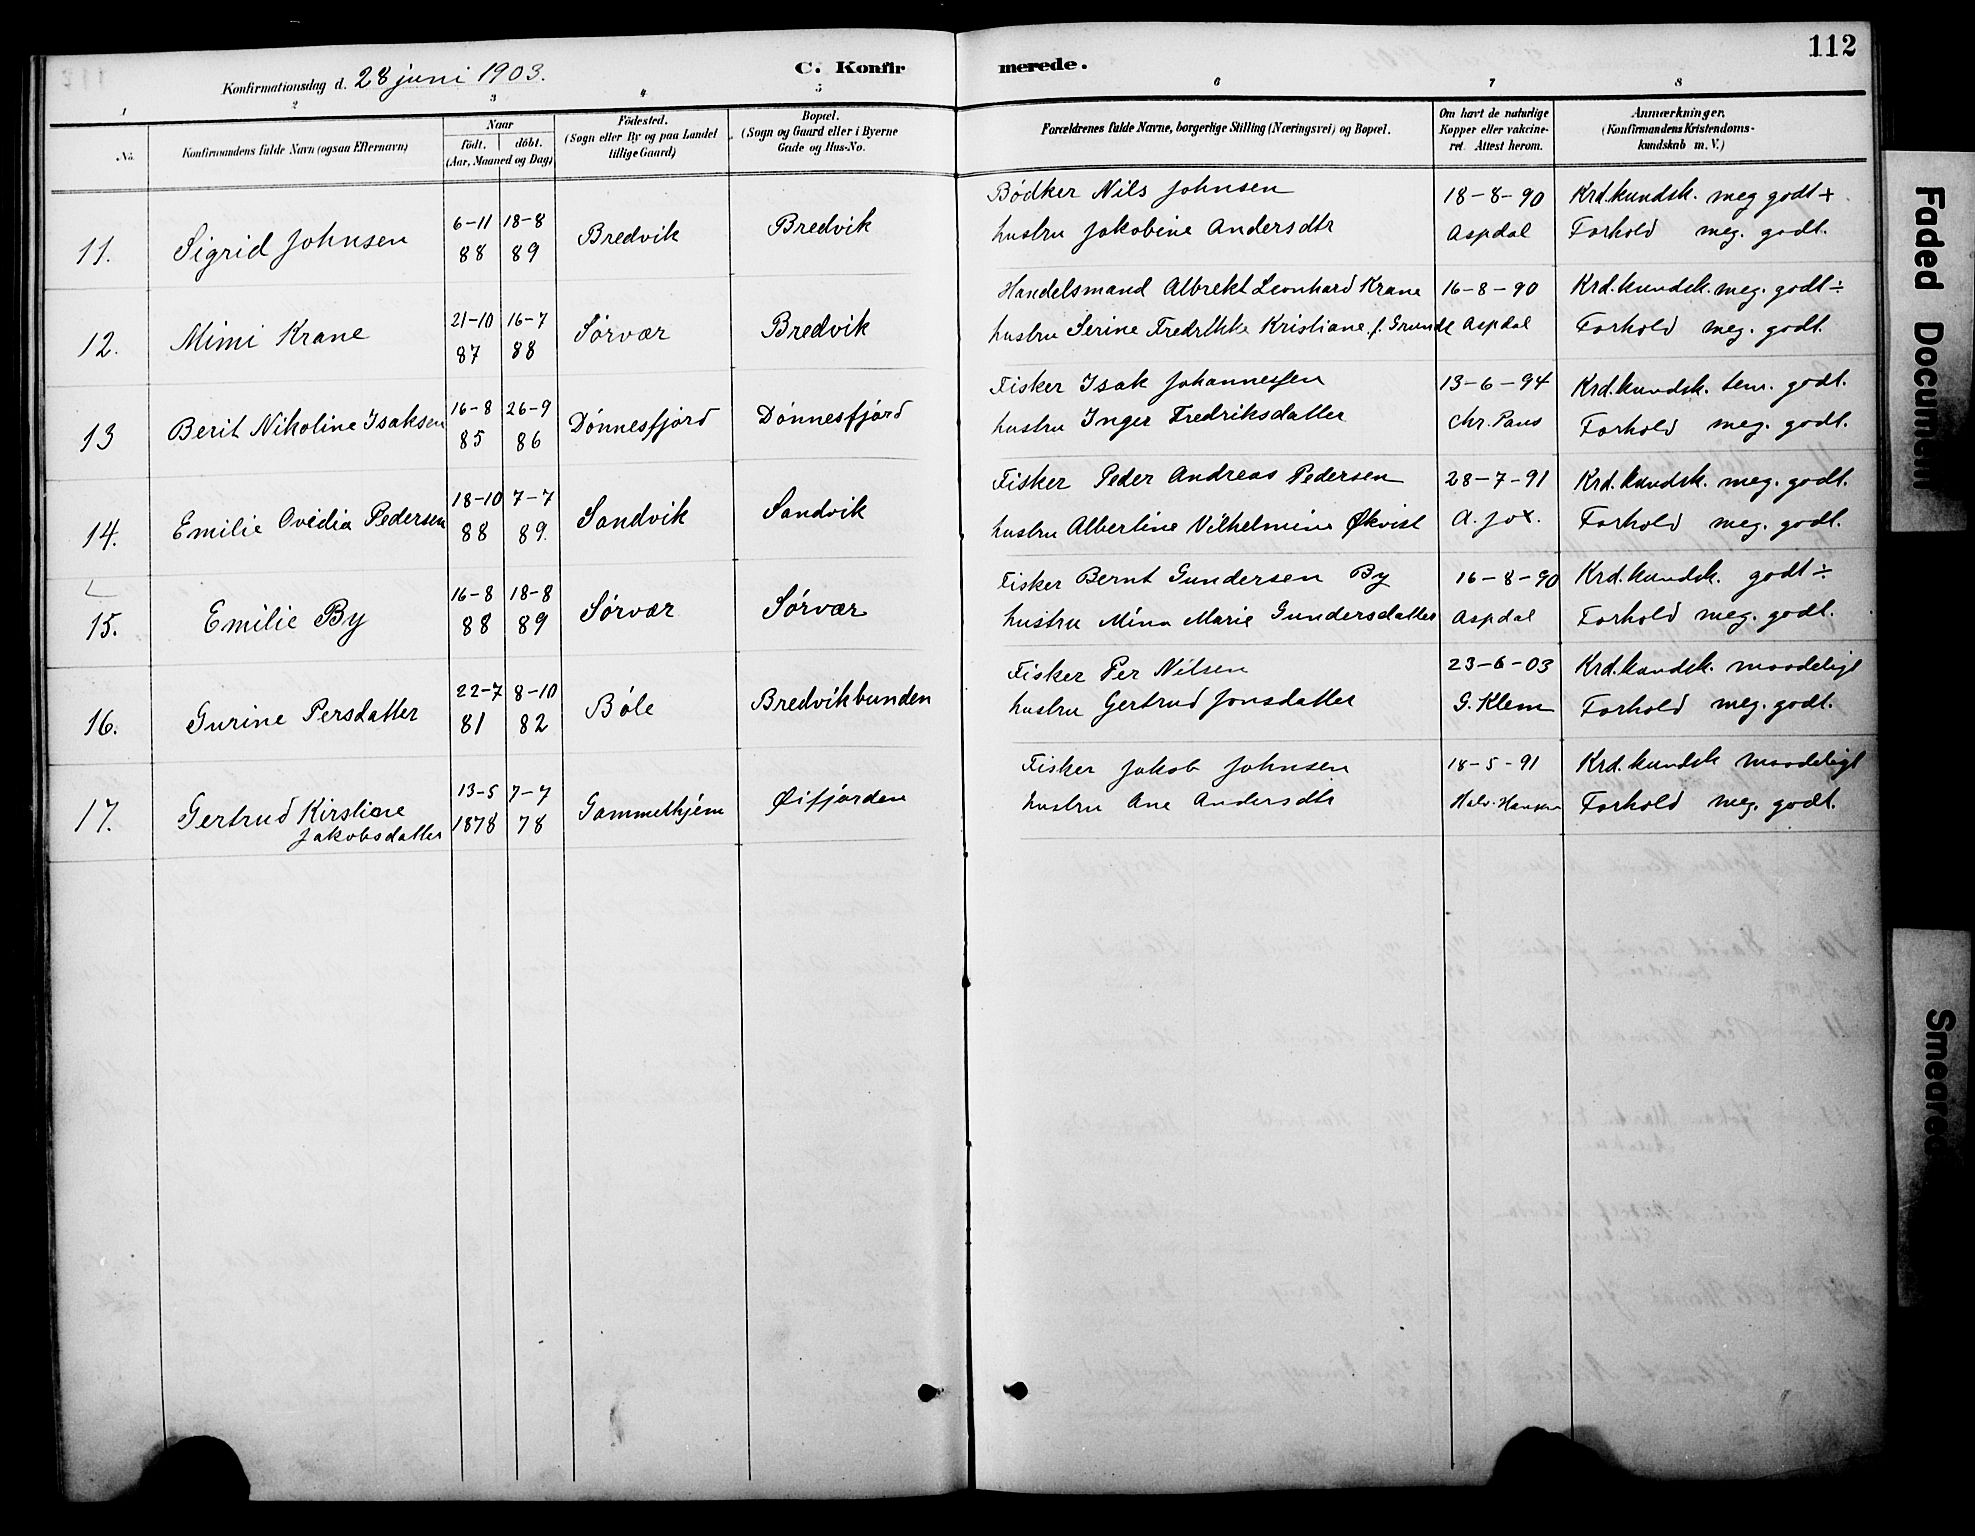 112
Konfirmationsdag d. 28 juni 1903.
C. Konfirmerede.
1 2 3 4 5 6 7 8
No.
Konfirmandens fulde Navn (ogsaa Efternavn)
Naar
födt. döbt.
(Aar, Maaned og Dag)
Födested.
(Sogn eller By og paa Landet
tillige Gaard)
Bopæl.
(Sogn og Gaard eller i Byerne
Gade og Hus-No.
Forældrenes fulde Navne, borgerlige Stilling (Næringsvei) og Bopæl.
Om havt de naturlige
Kopper eller vakcine-
ret. Attest herom.
Anmærkninger.
(Konfirmandens Kristendoms-
kundskab m. V.)
11. Sigrid Johnsen 6-11 88 18-8 89 Bredvik Bredvik
Bødker Nils Johnsen 18-8-90 Krd.kundsk. meg godt +
hustru Jakobine Andersdtr Aspdal Forhold meg. godt.
12. Mimi Krane 21-10 87 16-7 88 Sørvær Bredvik
Handelsmand Albrekt Leonhard Krane 16-8-90 Krd.kundsk. meg. godt ÷
hustru Serine Fredrikke Kristiane f. Grundt Aspdal Forhold meg. godt.
13 Berit Nikoline Isaksen 16-8 85 26-9 86 Dønnesfjord Dønnesfjord
Fisker Isak Johannesen 13-6-94 Krd.kundsk. tem. godt.
hustru Inger Fredriksdatter Chr. Paus Forhold meg. godt.
14. Emilie Ovidia Pedersen 18-10 88 7-7 89. Sandvik Sandvik
Fisker Peder Andreas Pedersen 28-7-91 Krd.kundsk. meg. godt.
hustru Albertine Vilhelmine Økvist A. Fox. Forhold meg. godt.
15. Emilie By 16-8 88 18-8 89 Sørvær Sørvær
Fisker Bernt Gundersen By 16-8-90 Krd.kundsk. godt ÷
hustru Mina Marie Gundersdatter Aspdal Forhold meg. godt.
16. Gurine Persdatter 22-7 81 8-10 82 Bøle Bredvikbunden
Fisker Per Nilsen 23-6-03 Krd.kundsk. maadeligt
hustru Gertrud Jonsdatter G. Klem Forhold meg. godt.
17. Gertrud Kirstiane Jakobsdatter 13-5 1878 7-7 78 Gammelhjem Øifjorden
Fisker Jakob Johnsen 18-5-91 Krd.kundsk maadeligt
hustru Ane Andersdtr Halv. Hansen Forhold meg. godt.
Faded Document
Smeared